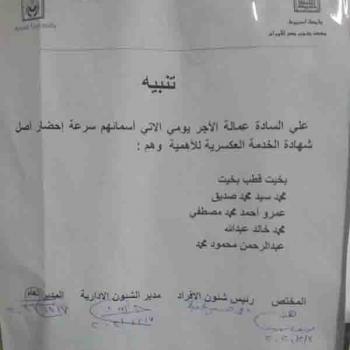 جامعة أسيوط
Assiut University
تنبيه
علي السادة عمالة الأجر يومي الاتي أسمائهم سرعة إحضار أصل
شهادة الخدمة العكسرية للأهمية وهم :
بخيت قطب بخيت
محمد سيد محمد صديق
عمرو أحمد محمد مصطفي
محمد خالد عبدالله
عبدالرحمن محمود محمد
المختص رئيس شئون الافراد مدير الشئون الادارية المدير العام